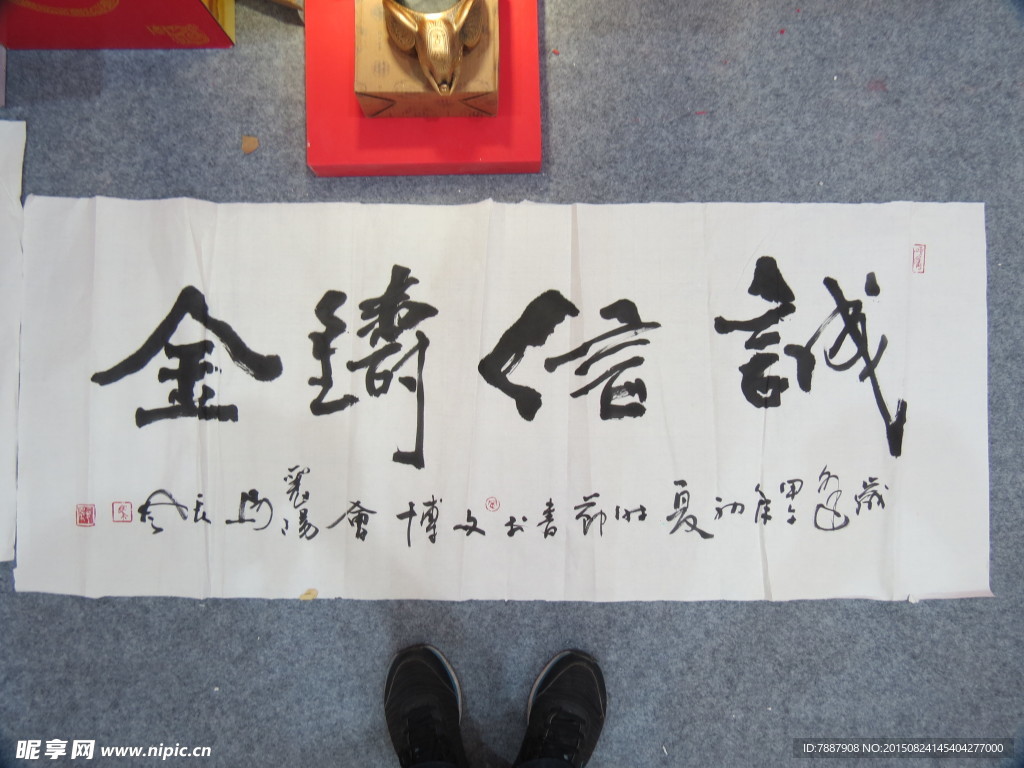 誠信鑄金
歲為逢甲午年初夏時節書於文博會襄陽
昵享网 www.nipic.cn
ID:7887908 NO:20150824145404277000